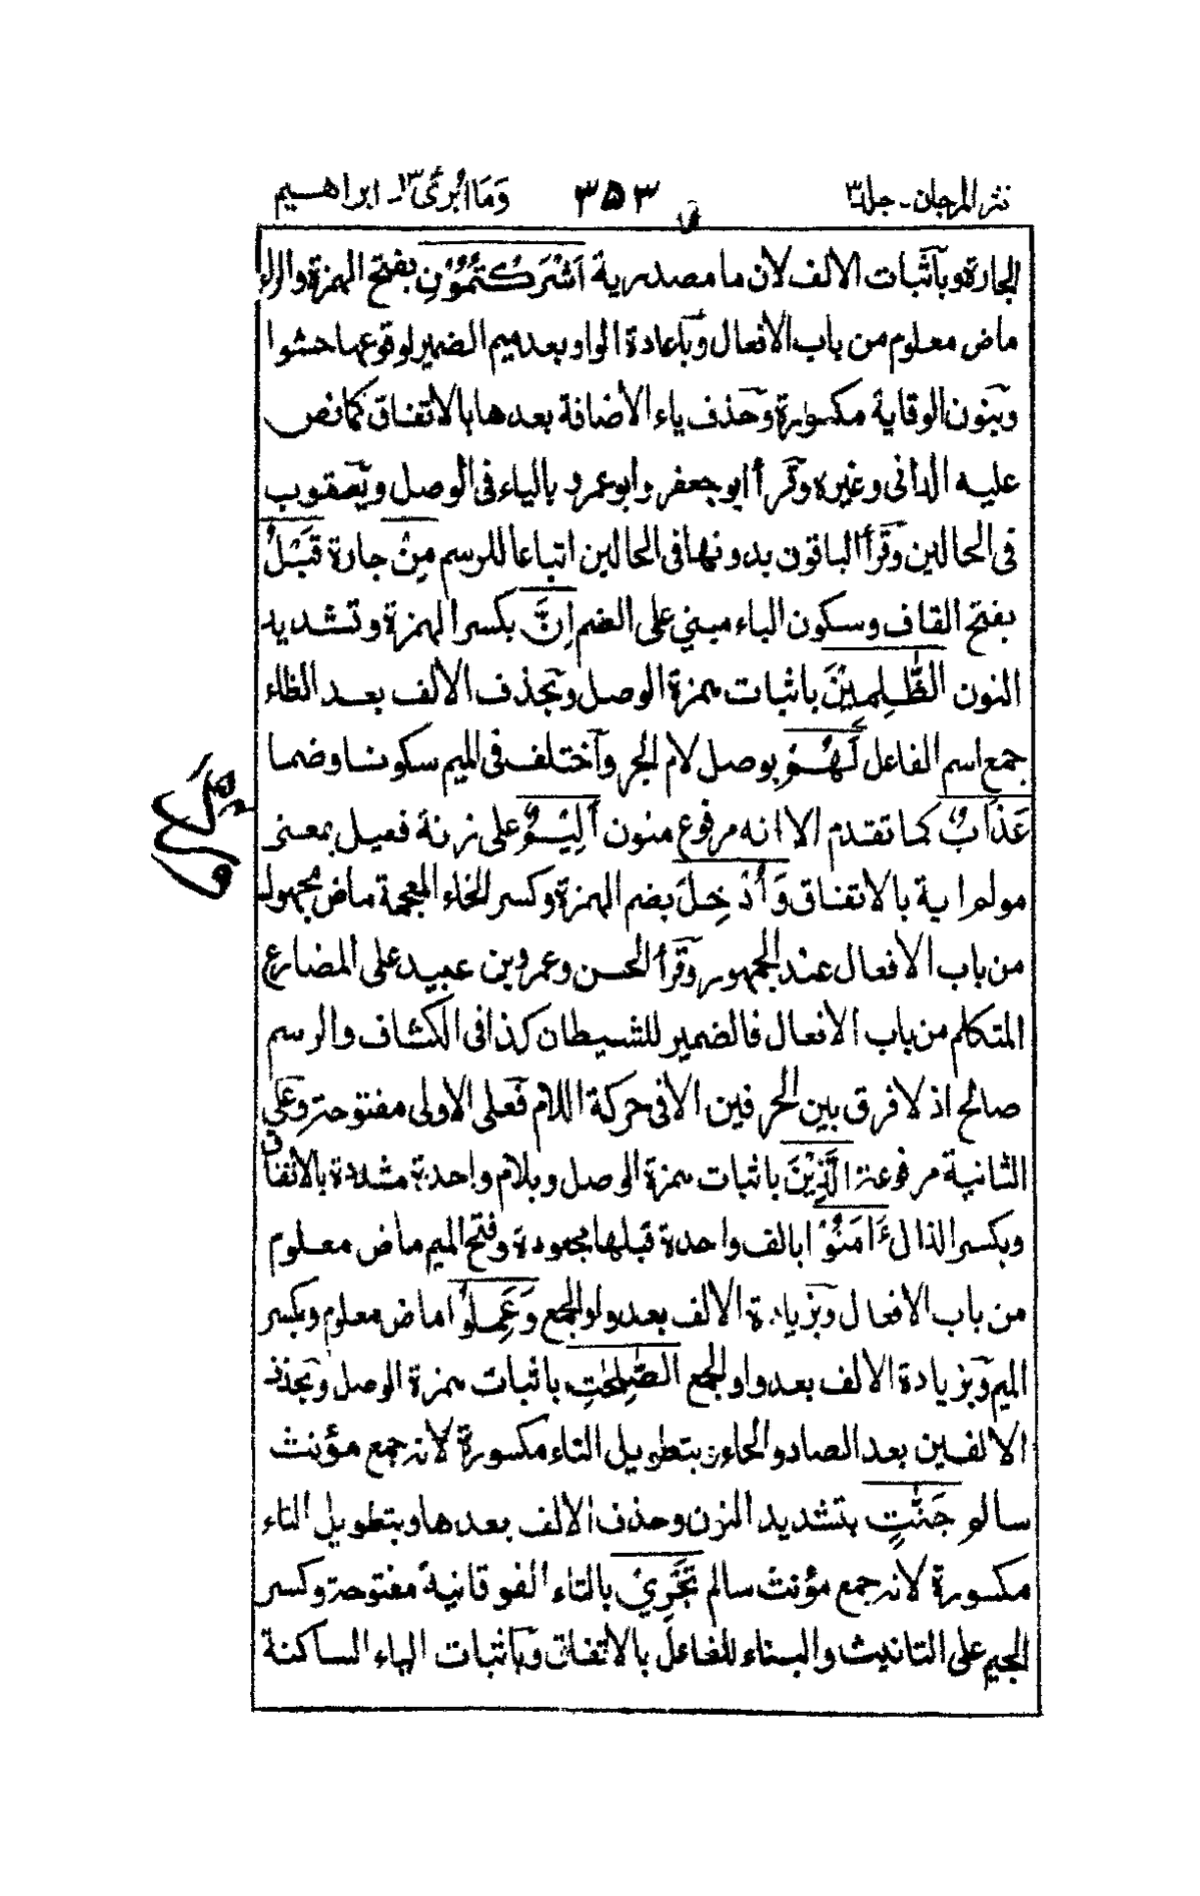 نثر المرجان - جلد ٣ ٣٥٣ وَمَا اُبَرِّئُ ١٣ - ابراهيم
الجارة وبآثبات الالف لان ما مصدرية اَشْرَكْتُمُوْنِ بفتح الهمزة والراء
ماض معلوم من باب الافعال وبآعادة الواو بعد ميم الضمير لوقوعها حشوا
وبنون الوقاية مكسورة وحذف ياء الاضافة بعدها بالاتفاق كما نص
عليه الدانى وغيره وقرأ ابو جعفر وابو عمرو بالياء فى الوصل ويعقوب
فى الحالين وقرأ الباقون بدونها فى الحالين اتباعا للرسم مِنْ جارة قَبْلُ
بفتح القاف وسكون الباء مبني على الضم اِنَّ بكسر الهمزة وتشديد
النون الظّٰلِمِيْنَ باثبات همزة الوصل وبحذف الالف بعد الظاء
جمع اسم الفاعل لَهُمْ بوصل لام الجر وآختلف فى الميم سكونا وضما
عَذَابٌ كما تقدم الا انه مرفوع منون اَلِيْمٌ على زنة فعيل بمعنى
مولم اية بالاتفاق وَاُدْخِلَ بضم الهمزة وكسر الخاء المعجمة ماض مجهول
من باب الافعال عند الجمهور وقرأ الحسن وعمرو بن عبيد على المضارع
المتكلم من باب الافعال فالضمير للشيطان كذا فى الكشاف والرسم
صالح اذ لا فرق بين الحرفين الا فى حركة اللام فعلى الاولى مفتوحة وعلى
الثانية مرفوعة الَّذِيْنَ باثبات همزة الوصل وبلام واحدة مشددة بالاتفاق
وبكسر الذال ءَامَنُوْا بالف واحدة قبلها مجعودة وفتح الميم ماض معلوم
من باب الافعال وبزيادة الالف بعد واو الجمع وَعَمِلُوْا ماض معلوم وبكسر
الميم وبزيادة الالف بعد واو الجمع الصّٰلِحٰتِ باثبات همزة الوصل وبحذف
الالفين بعد الصاد والحاء وبتطويل التاء مكسورة لانه جمع مؤنث
سالم جَنّٰتٍ بتشديد النون وحذف الالف بعدها وبتطويل التاء
مكسورة لانه جمع مؤنث سالم تَجْرِيْ بالتاء الفوقانية مفتوحة وكسر
الجيم على التانيث والبناء للفاعل بالاتفاق وبآثبات الياء الساكنة